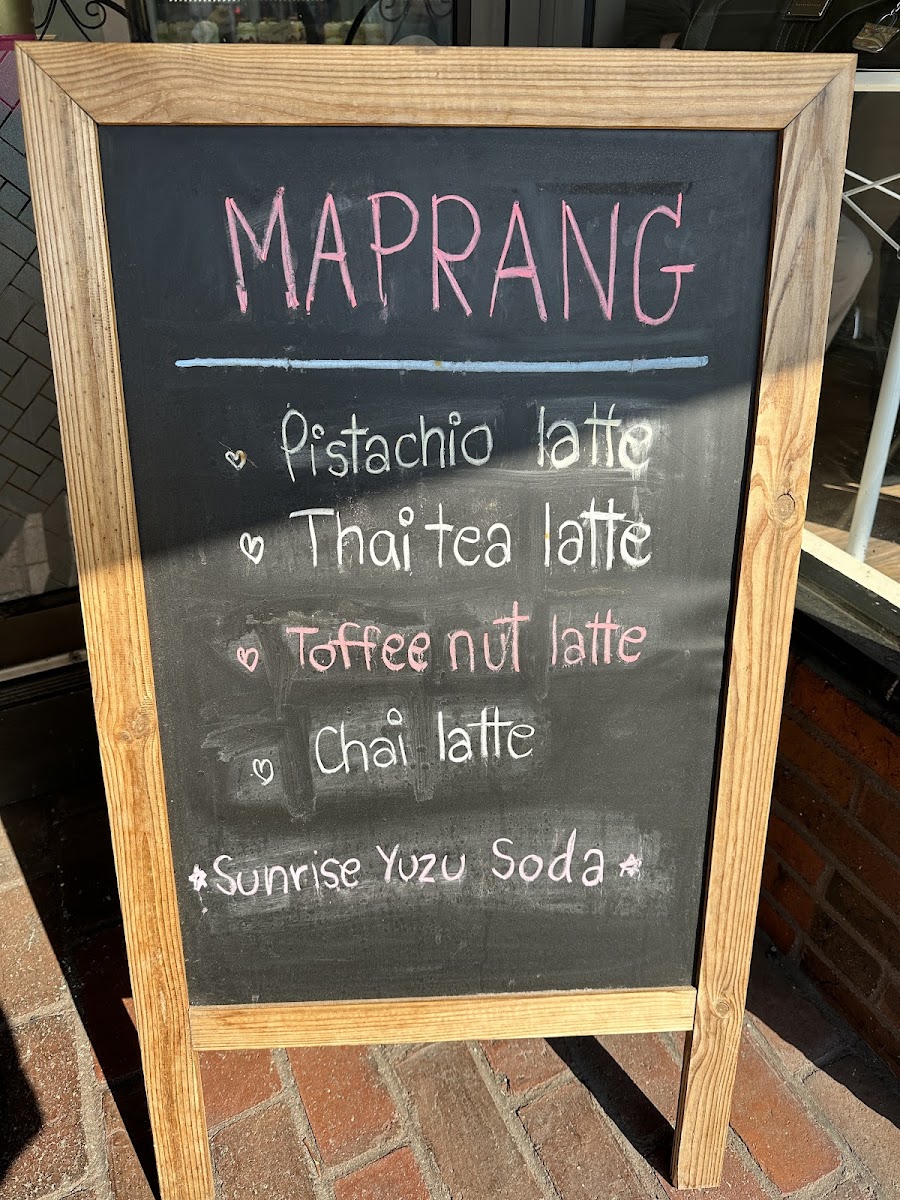 MAPRANG
Pistachio latte
Thai tea latte
Toffee nut latte
Chai latte
Sunrise Yuzu Soda